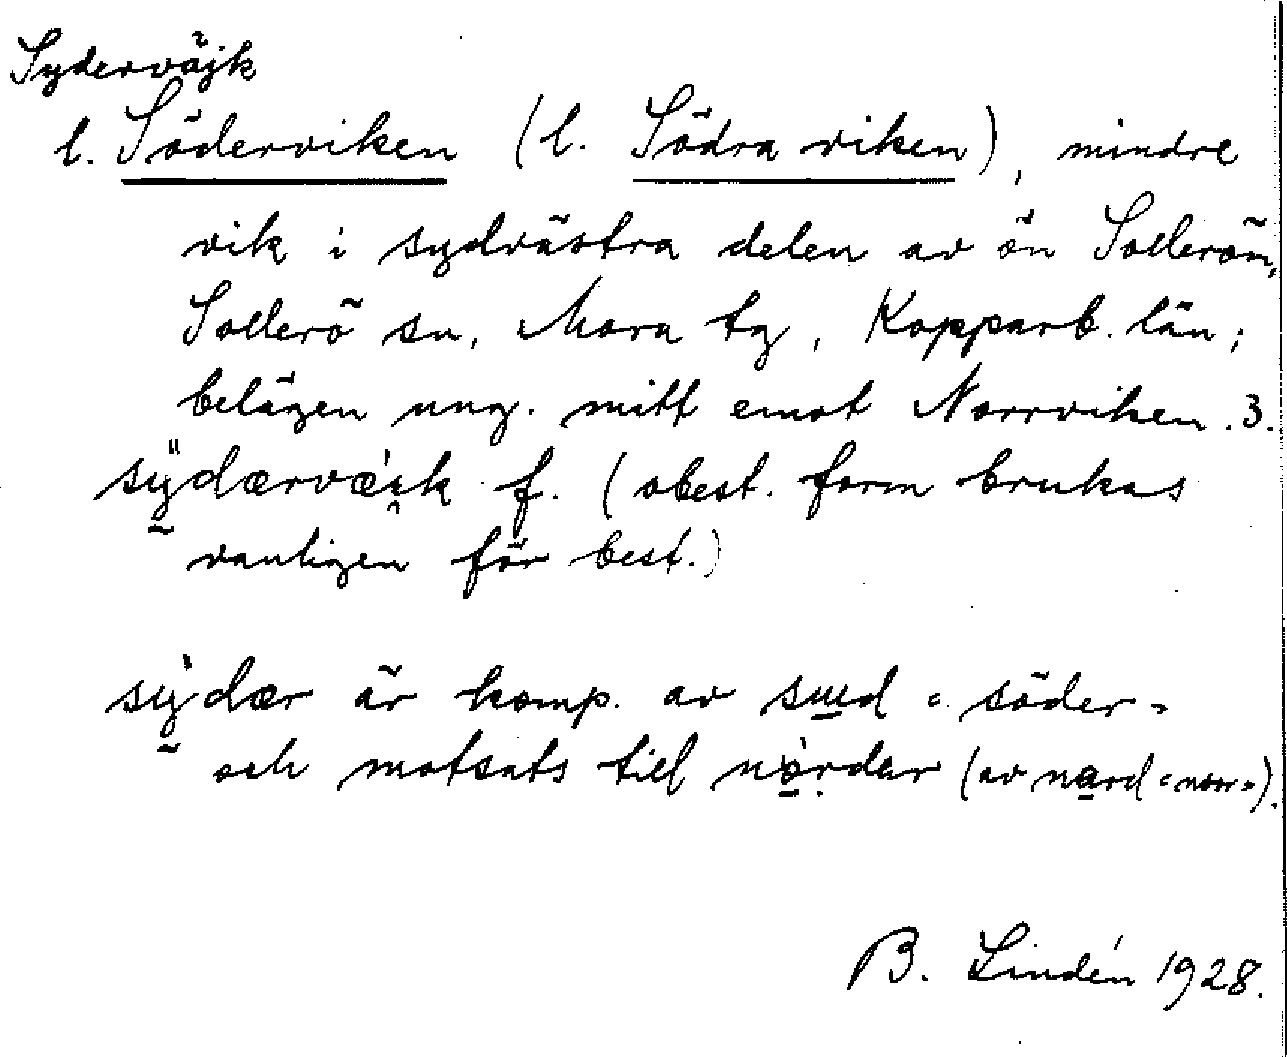 Syderväjk
l. Söderviken (l. Södra viken), mindre
vik i sydvästra delen av ön Sollerön,
Sollerö sn, Mora tg, Kopparb. län;
belägen ung. mitt emot Norrviken. 3.
sydærvæik f. (obest. form brukas
vanligen för best.)
sydær är komp. av sud "söder"
och motsats till nordær (av nord "norr").
B. Lindén 1928.